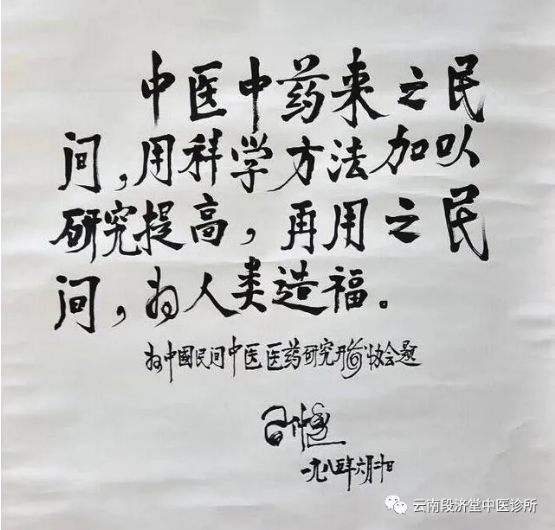 中医中药来之民
间,用科学方法加以
研究提高,再用之民
间,为人类造福。
为中國民间中医医药研究开发协会题
吕炳奎
一九八五年六月二十日
云南段济堂中医诊所